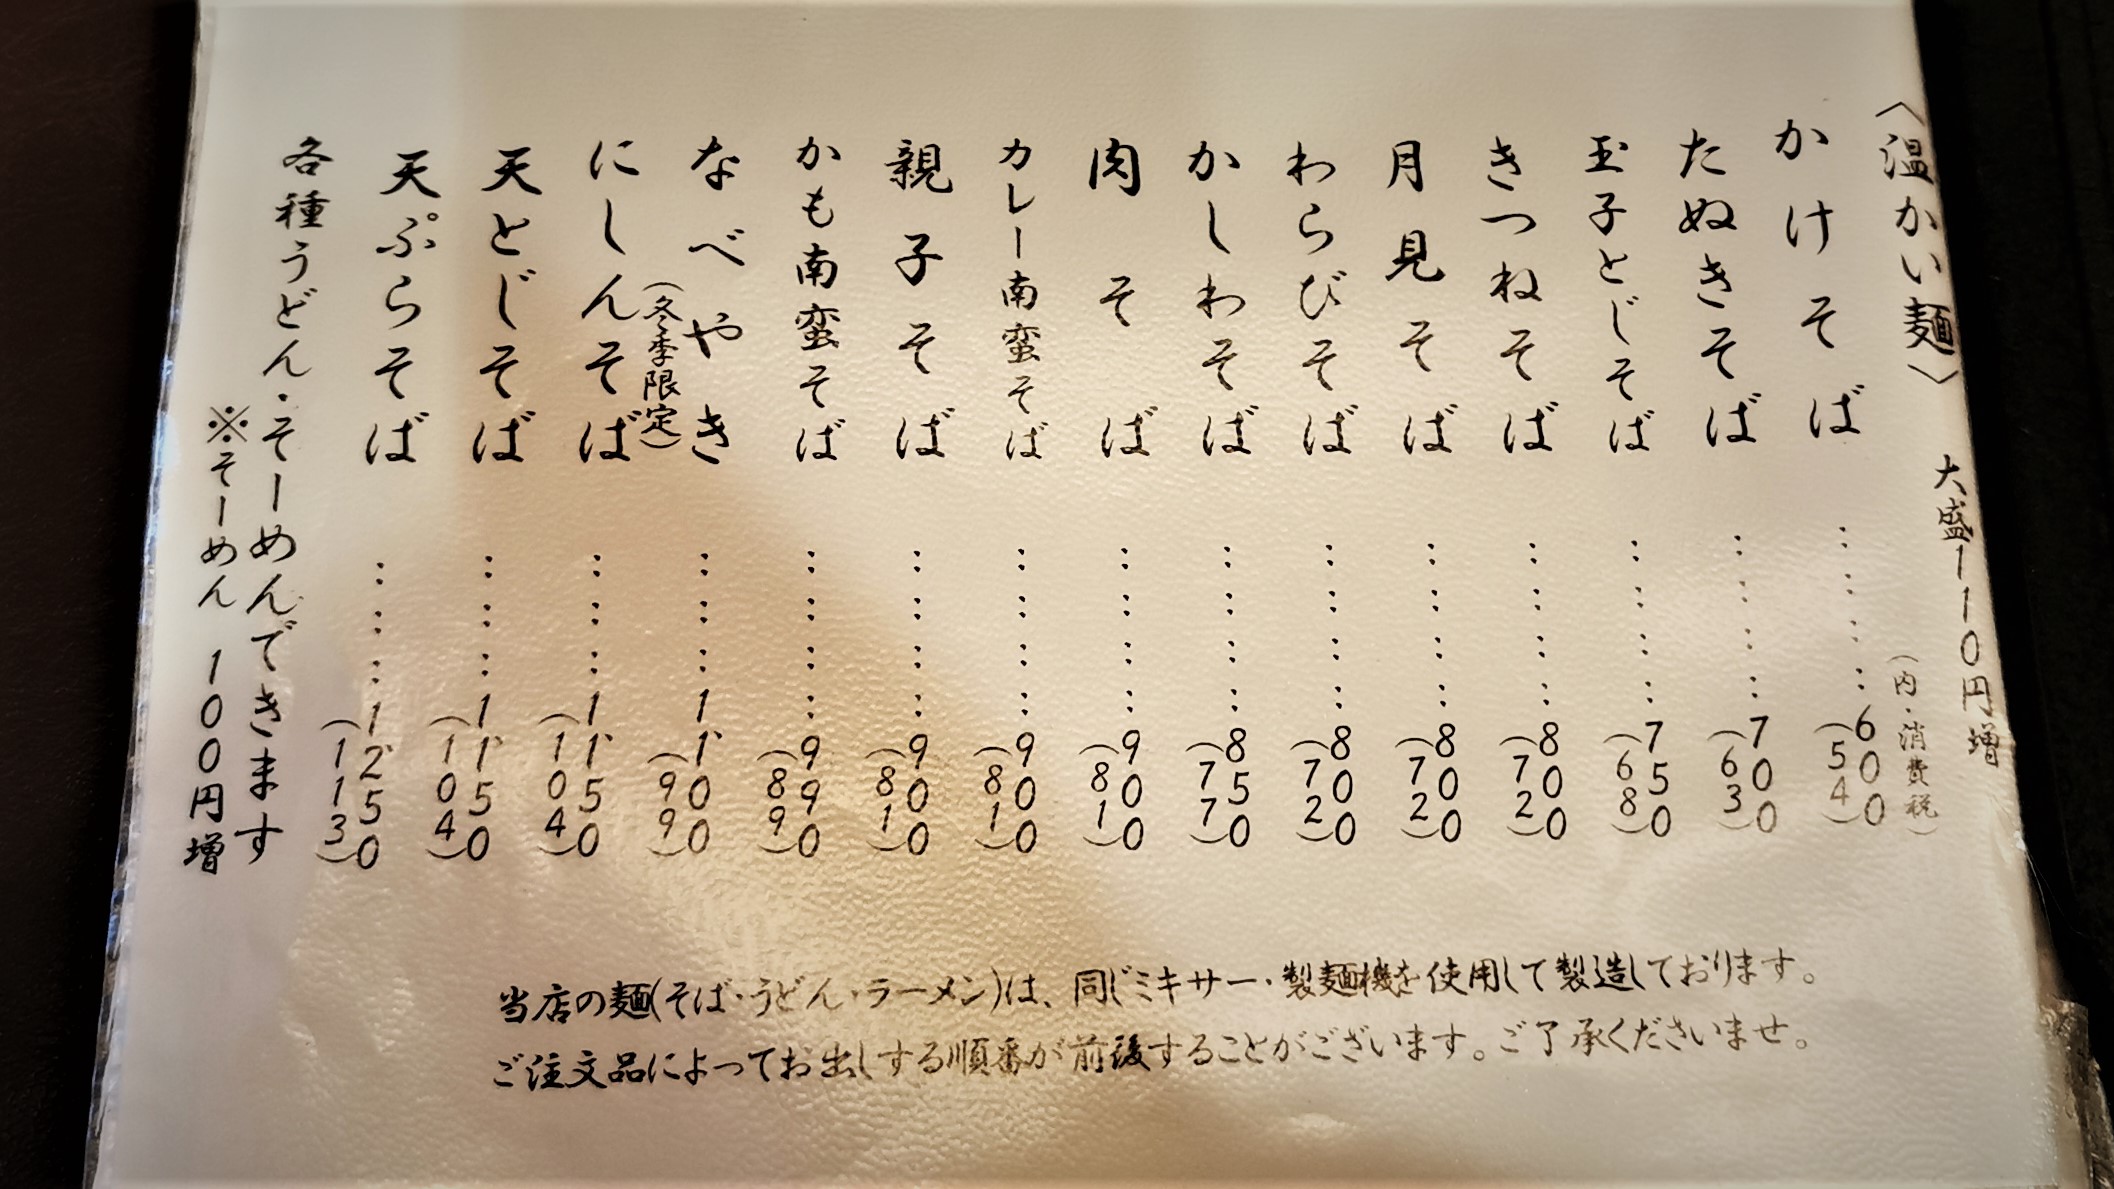 〈温かい麺〉 大盛110円増
(内・消費税)
かけそば ……… 600 (54)
たぬきそば ……… 700 (63)
玉子とじそば ……… 750 (68)
きつねそば ……… 800 (72)
月見そば ……… 800 (72)
わらびそば ……… 800 (72)
かしわそば ……… 850 (77)
肉そば ……… 900 (81)
カレー南蛮そば ……… 900 (81)
親子そば ……… 900 (81)
かも南蛮そば ……… 990 (89)
なべやき ……… 1,100 (99)
(冬季限定)
にしんそば ……… 1,150 (104)
天とじそば ……… 1,150 (104)
天ぷらそば ……… 1,250 (113)
各種うどん・そーめんできます
※そーめん 100円増
当店の麺(そば・うどん・ラーメン)は、同じミキサー・製麺機を使用して製造しております。
ご注文品によってお出しする順番が前後することがございます。ご了承くださいませ。